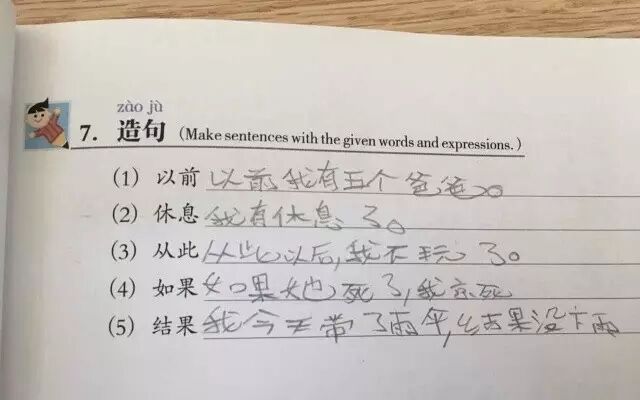 zào jù
7. 造句 (Make sentences with the given words and expressions.)
(1) 以前 以前我有五个爸爸。
(2) 休息 我有休息了。
(3) 从此 从此以后,我不玩了。
(4) 如果 如果她死了,我亦死
(5) 结果 我今天带了雨伞,结果没下雨